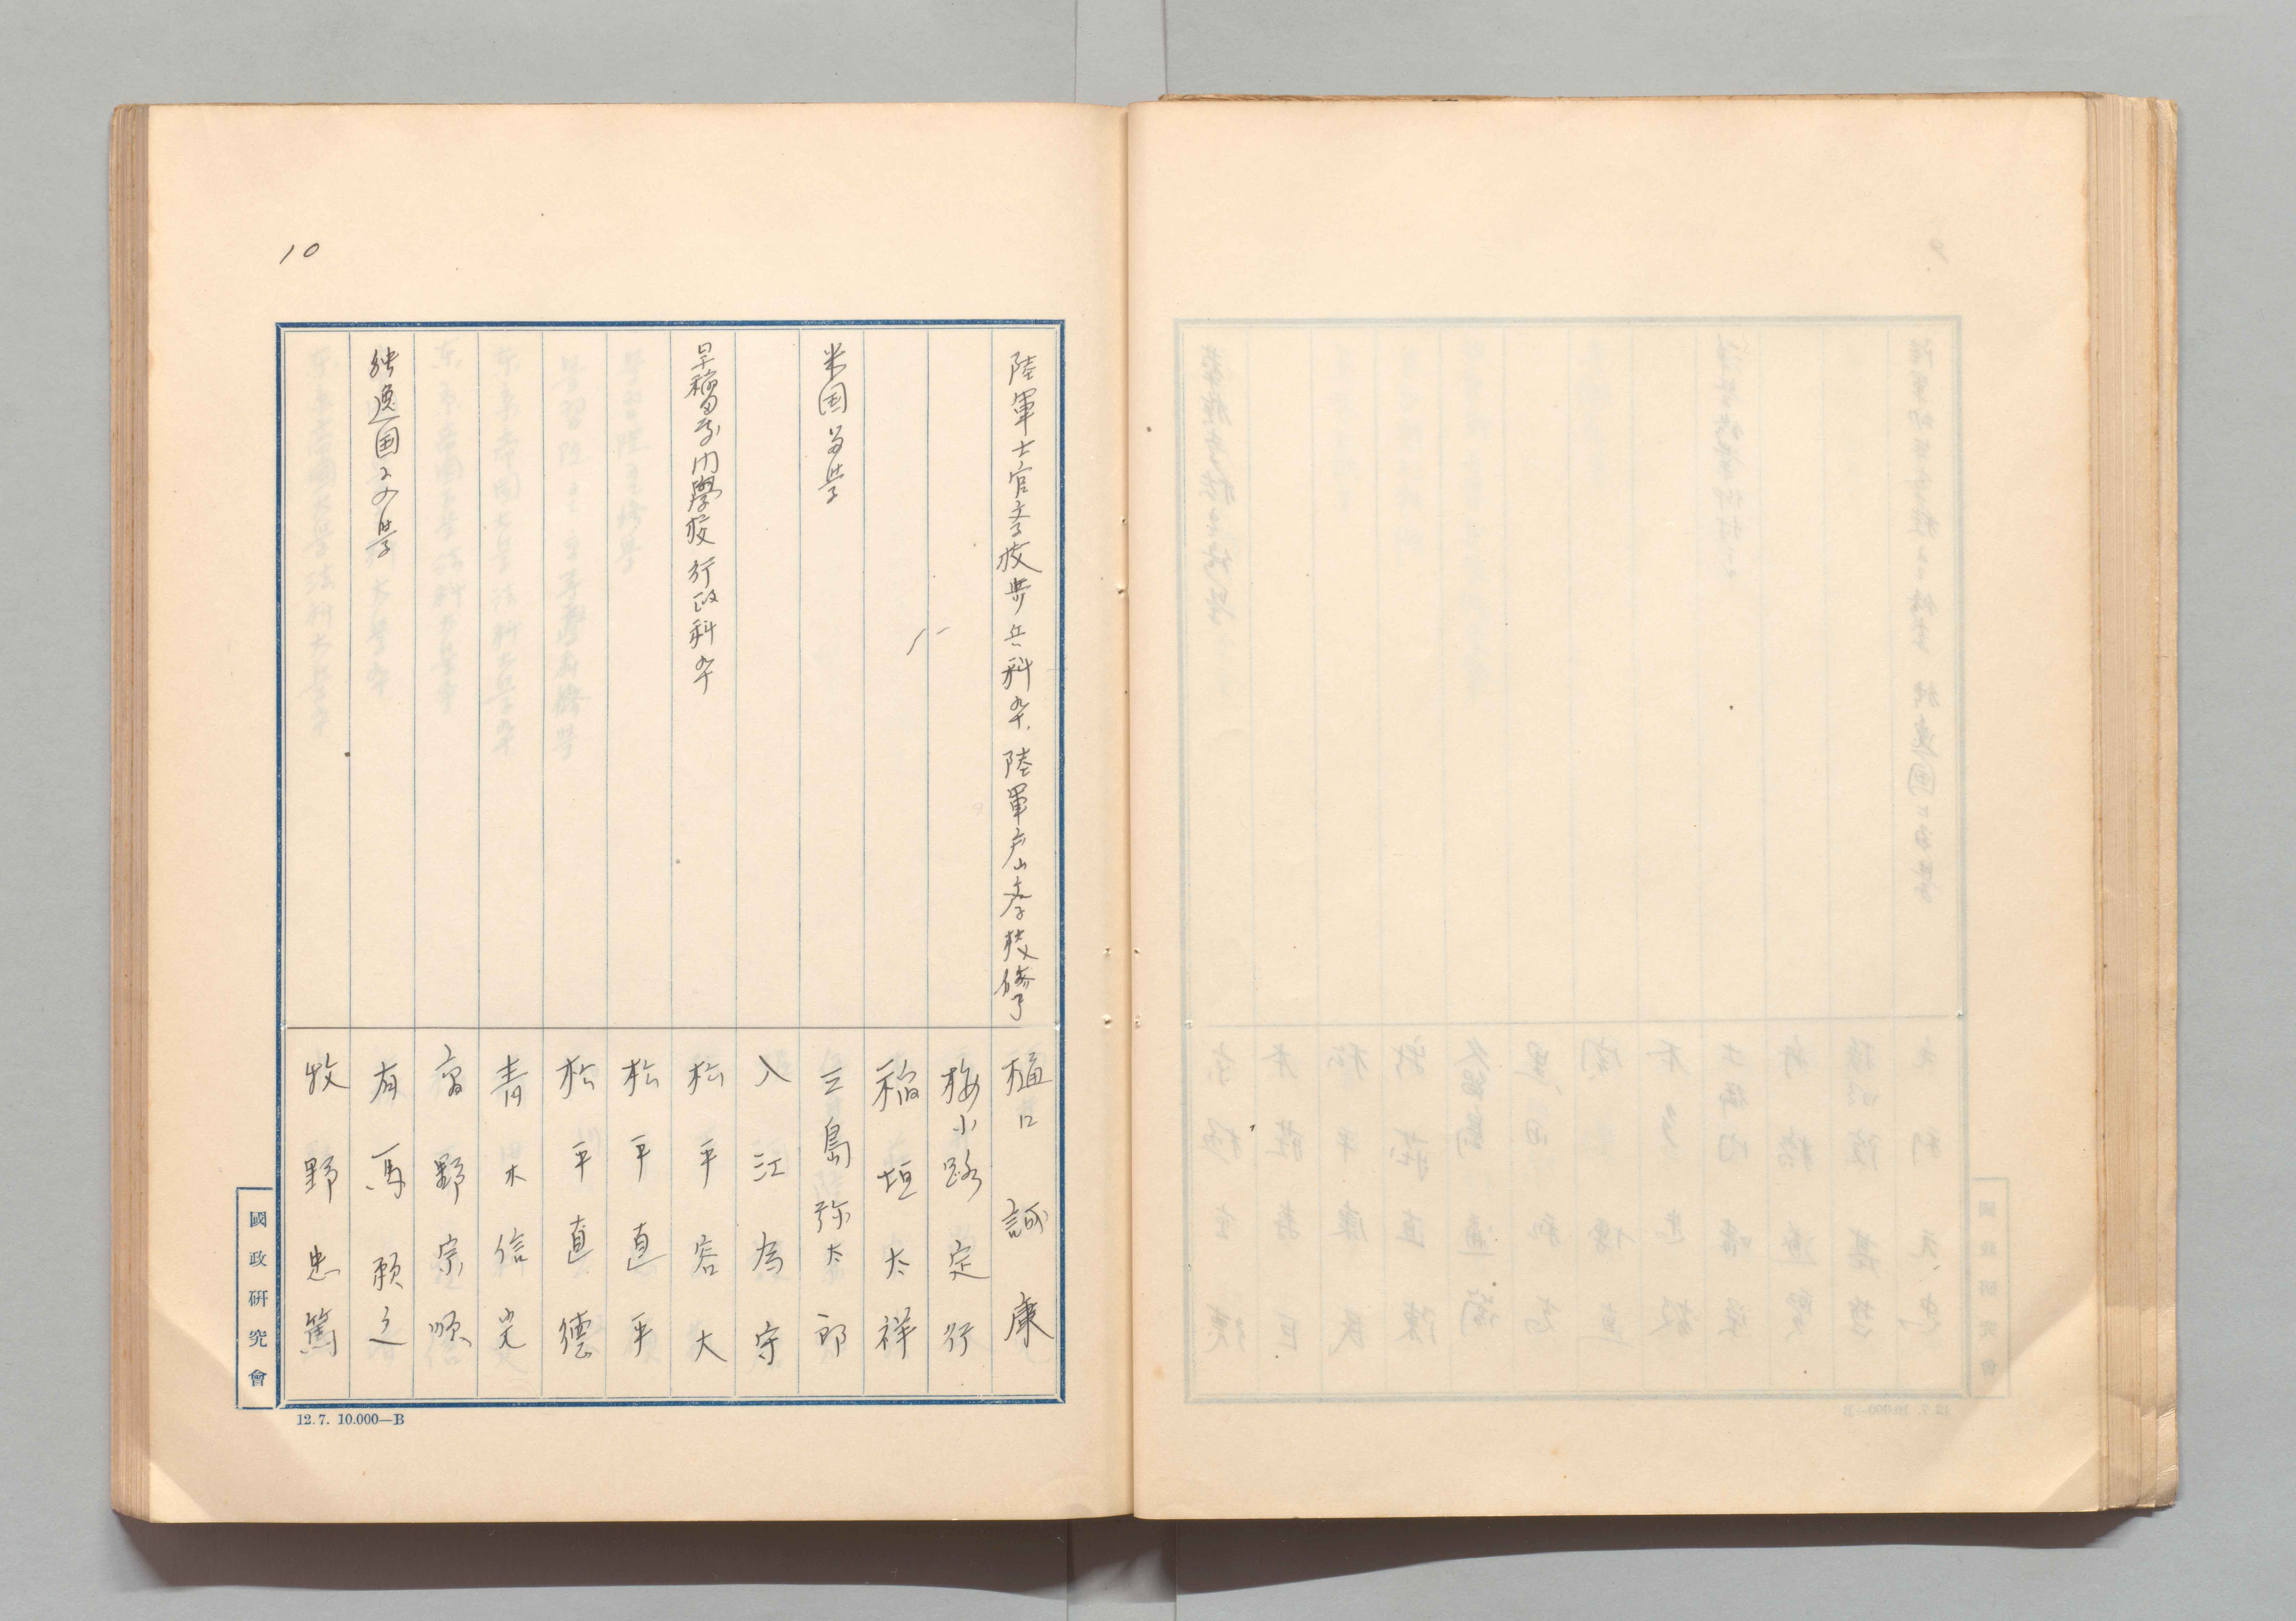 10
陸軍士官学校歩兵科卒、陸軍戸山学校修了
樋口誠康
梅小路定行
稲垣太祥
米国留学
三島弥太郎
入江為守
早稲田専門學校行政科卒
松平容大
松平直平
松平直德
青木信光
高野宗順
独逸国留学
有馬頼之
牧野忠篤
國政研究會
12.7. 10.000—B